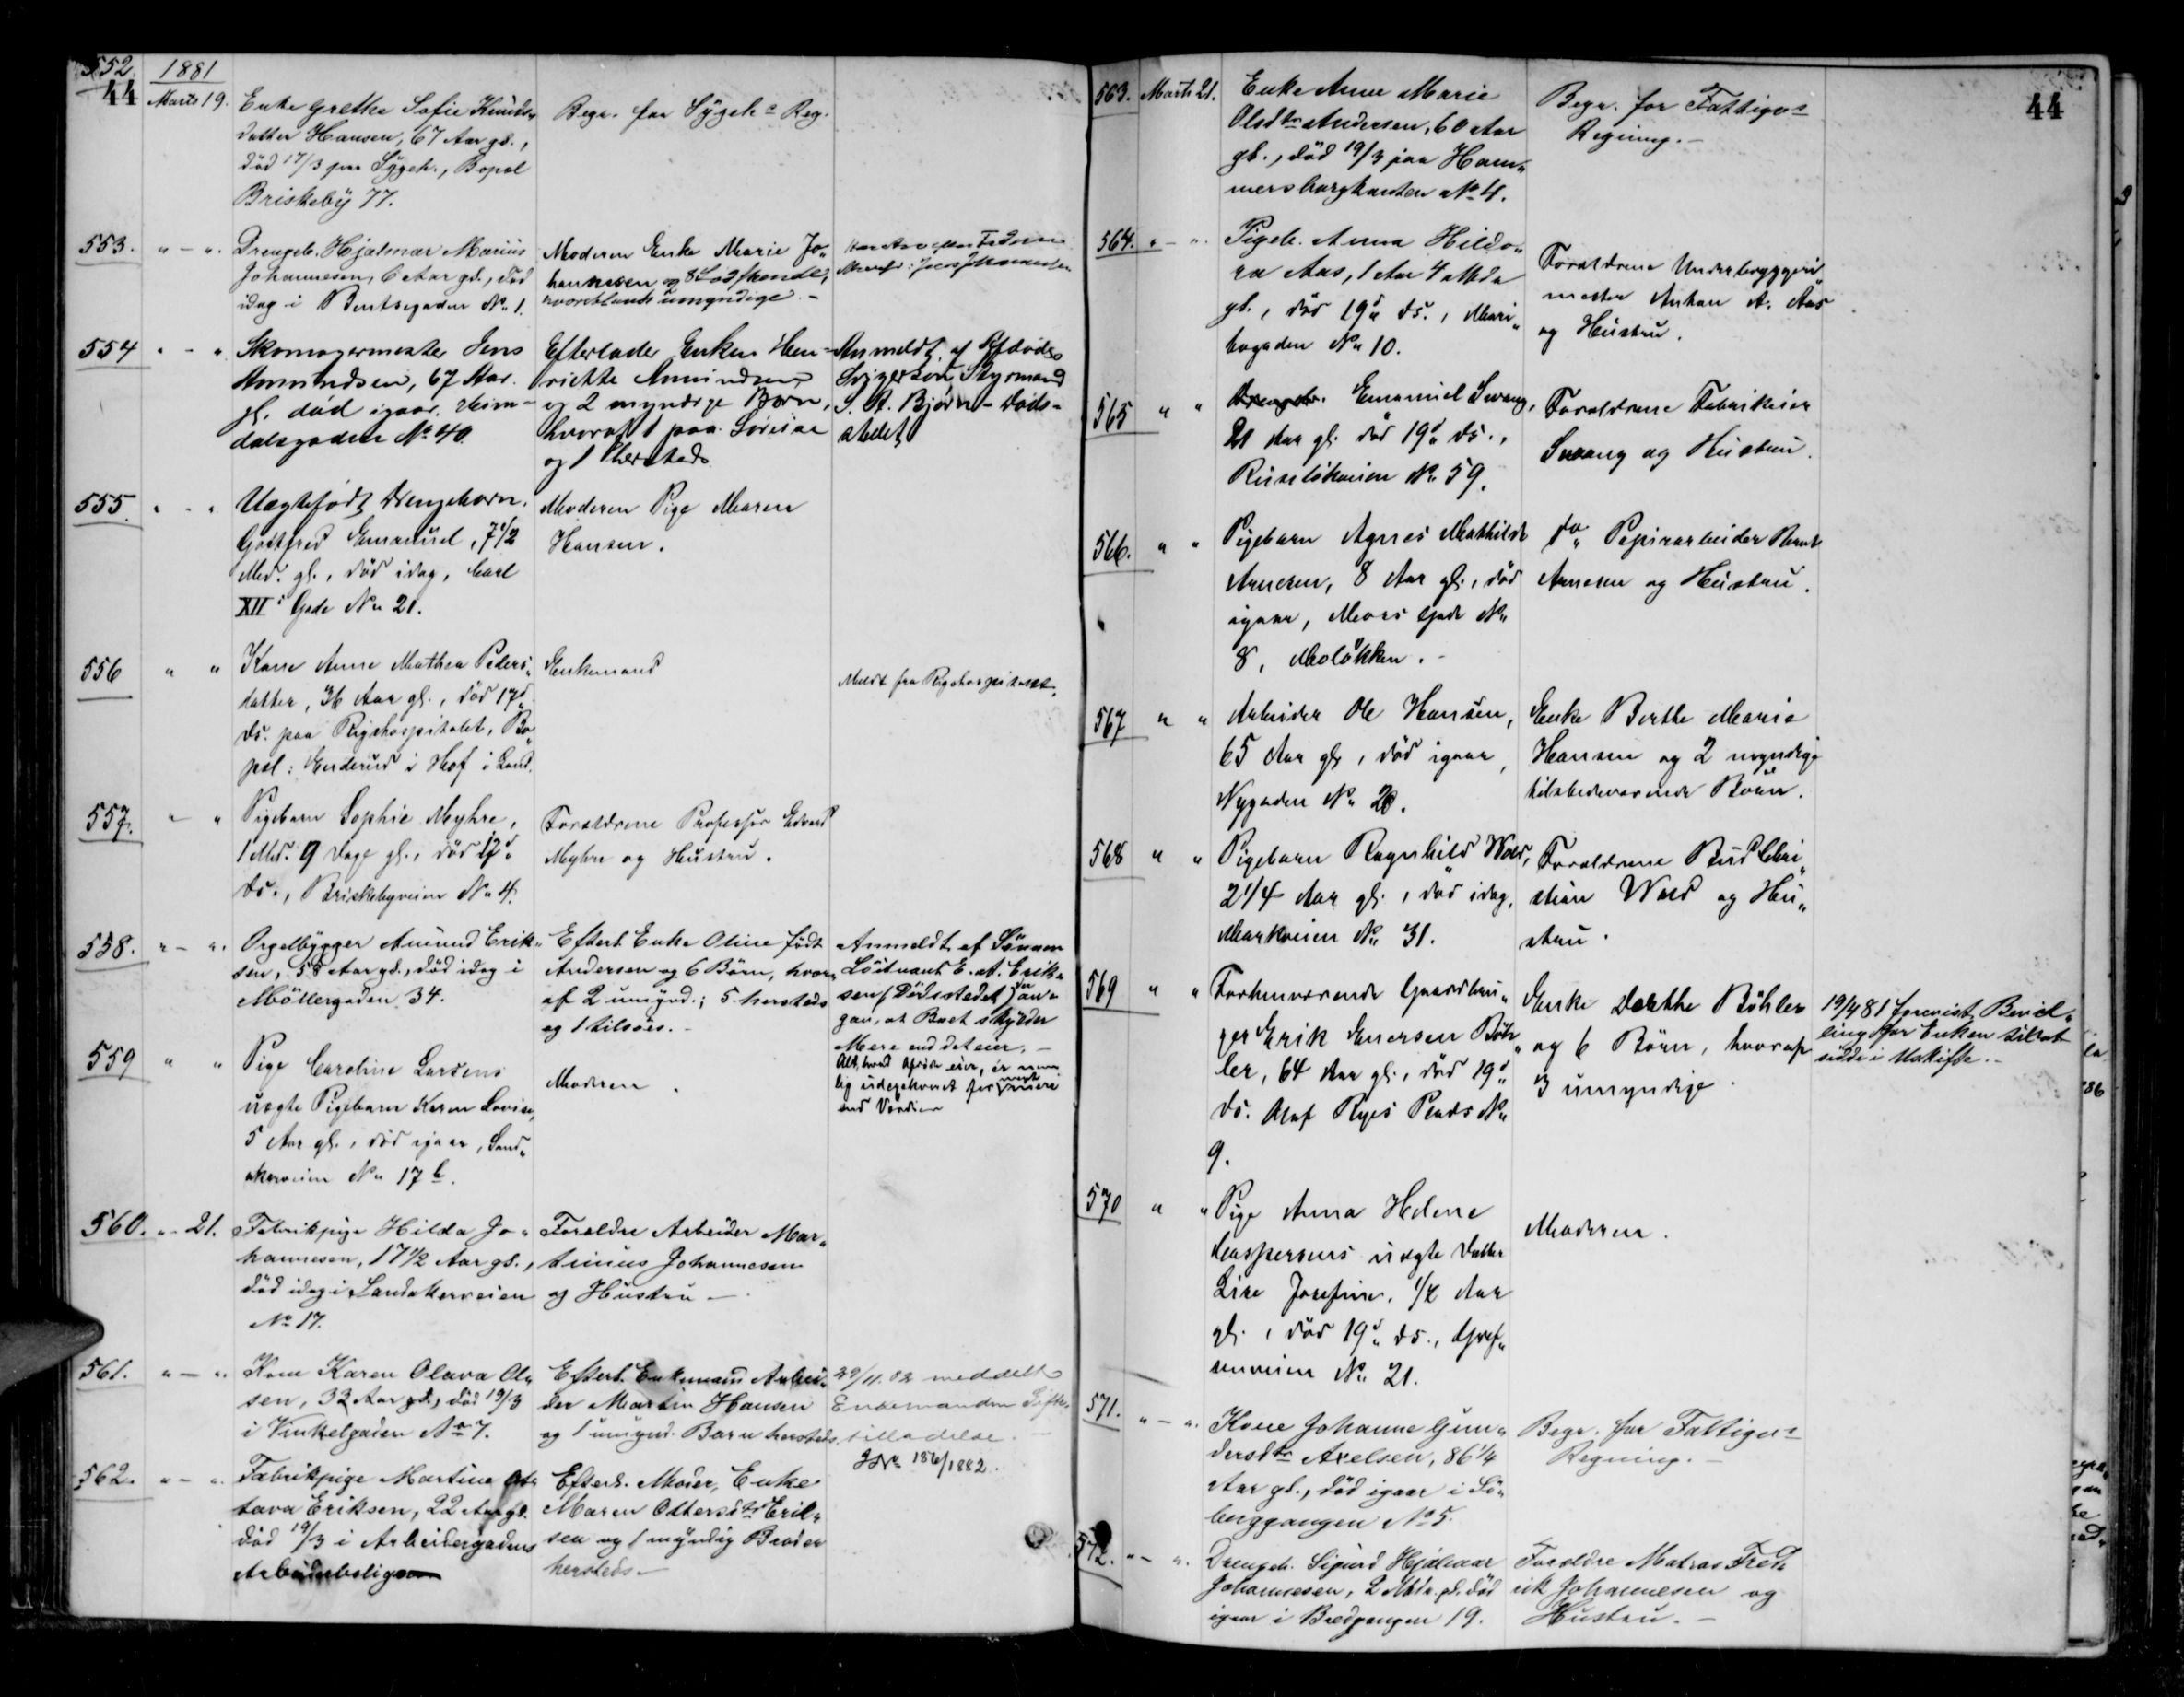 552.
44
1881
Marts 19.
Enke Grethe Sofie Knuds„
datter Hansen, 67 Aar gl.,
død 17/3 paa Sygeh., Bopæl
Briskeby 77.
Begr. for Sygeh. Reg.
553. „ — „
Drengeb. Hjalmar Marius
Johannesen, 6 Aar gl., død
idag i Bentsegaden No 1.
Moderen Enke Marie Jo„
hannesen og 8 Sødskende,
hvoriblandt umyndige. —
554 „ - „
Skomagermester Jens
Amundsen, 67 Aar
gl. død igaar. Heim-
dalsgaden No 40.
Efterlader Enken Hen-
riette Amundsen
og 2 myndige Børn,
hvoraf 1 paa
og 1 hersteds
Anmeldt af Afdødes
Svigersøn, Styrmand
S. A. Bjørn - Døds-
stedet
555. „ - „
Uægtefødt Drengebarn
Gottfred Emanuel, 7 1/2
Md. gl., død idag, Carl
XII's Gade No 21.
Moderen Pige Maren
Hansen.
556 „ „
Kone Anne Mathea Peders„
datter, 36 Aar gl., død 17d
ds. paa Rigshospitalet, Bo„
pæl: Enderud i Hof i Land.
Enkemand
Meldt fra Rigshospitalet.
557. „ „
Pigebarn Sophie Myhre,
1 Md. 9 Dage gl., død 17d
ds., Briskebyveien No 4.
Forældrene Professor Edvard
Myhre og Hustru.
558. „ — „
Orgelbygger Amund Erik„
sen, 58 Aar gl., død idag i
Møllergaden 34.
Efterl. Enke Oline født
Andersen og 6 Børn, hvor„
af 2 umynd.; 5 hersteds
og 1 tilsøes. -
Anmeldt af Sønnen
Løitnant E. A. Erik„
sen (Dødsstedet) der an„
gav, at Boet skylder
Mere end det eier. —
Alt, hvad Afdøde eier, er
lig udpantet for mere
end Værdien
559 „ „
Pige Caroline Larsens
uægte Pigebarn Karen Lovise,
5 Aar gl., død igaar, Sand„
akerveien No 17 b.
Moderen.
560. „ - 21.
Fabrikpige Hilda Jo„
hannesen, 17 1/2 Aar gl.,
død idag i Sandakerveien
No 17.
Forældre Arbeider Mar„
tinius Johannesen
og Hustru —
561. „ — „
Kone Karen Olava Ol„
sen, 32 Aar gl., død 19/3
i Vinkelgaden No 7.
Efterl. Enkemand Arbei„
der Martin Hansen
og 1 umynd. Barn hersteds
29/11. 82 meddelt
Enkemanden Gifte„
tilladelse. —
JNo 186/1882.
562. „ — „
Fabrikpige Martine Oc„
tava Eriksen, 22 Aar gl.
død 19/3 i Arbeidergadens
Arbeiderboliger
Efterl. Moder, Enke
Maren Ottersdtr Erik„
sen og 1 myndig Broder
hersteds —
44
563. Marts 21.
Enke Anne Marie
Olsdtr Andersen, 60 Aar
gl., død 19/3 paa Ham„
mersborgkanten No 4.
Begr. for Fattigv.
Regning. —
564. „ — „
Pigeb. Anna Hildo„
ra Aas, 1 Aar 4 Mdr
gl., død 19d ds., Mari„
bogaden No 10.
Forældrene Underbryggeri„
mester Anton A. Aas
og Hustru.
565 „ „
Emanuel Svang,
21 Aar gl. død 19d ds.,
Ruseløkveien No 59.
Forældrene Fabrikeier
Svang og Hustru.
566. „ „
Pigebarn Agnes Mathilde
Arnesen, 8 Aar gl., død
igaar, Mors Gade No
8, Meløkken. -
do Papirarbeider Bernt
Arnesen og Hustru.
567 „ „
Arbeider Ole Hansen,
65 Aar gl, død igaar,
Nygaden No 20.
Enke Berthe Marie
Hansen og 2 myndige
tilstedeværende Børn.
568 „ „
Pigebarn Ragnhild Wold,
2 1/4 Aar gl., død idag,
Markveien No 31.
Forældrene Bud Chri„
stian Wold og Hu„
stru.
569 „ „
Forhenværende Gaardbru„
ger Erik Enersen Bøh„
ler, 64 Aar gl., død 19d
ds. Olaf Ryes Plads No
9.
Enke Dorthe Bøhler
og 6 Børn, hvoraf
3 umyndige.
19/4 81 forevist Bevil„
ling for Enken til at
sidde i Uskifte. -
570 „ „
Pige Anna Helene
Caspersens uægte Datter
Lise Josefine, 1/2 Aar
gl., død 19d ds., Gref„
senveien No 21.
Moderen.
571. „ — „
Kone Johanne Gun„
dersdtr Axelsen, 86 1/4
Aar gl., død igaar i Sø„
berggangen No 5.
Begr. for Fattigv.
Regning. —
572. „ — „
Drengeb. Sigurd Hjalmar
Johannesen, 2 Mdr. gl. død
igaar i Bredgangen 19.
Forældre Matros Fred„
rik Johannesen og
Hustru. —